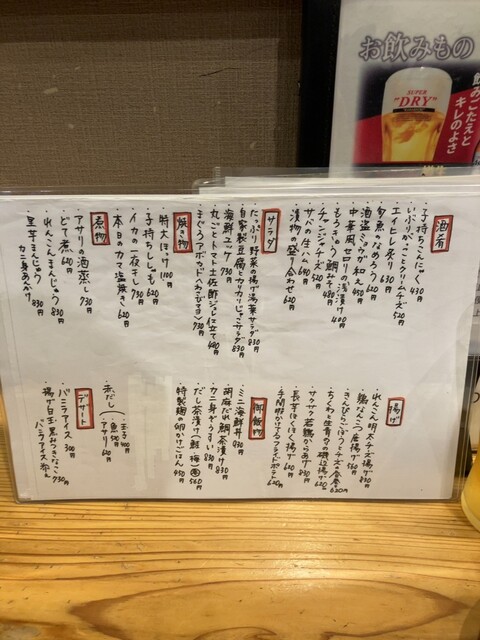 お飲みもの
SUPER
"DRY"
飲みごたえと
キレのよさ
酒肴
・子持ちこんにゃく 430円
・いぶりがっことクリームチーズ 520円
・エイヒレ炙り 630円
・青魚のなめろう 620円
・酒盗ミツカが和え 450円
・中華風セロリの浅漬け 400円
・もろきゅう鯛みそ 480円
・チャンジャチーズ 520円
・サバの生ハム 640円
・漬物の盛り合わせ 620円
サラダ
・たっぷり野菜の揚げ湯葉サラダ 830円
・自家製豆腐のカリカリじゃこサラダ 830円
・海鮮ユッケ 730円
・丸ごとトマト土佐酢ジュレ仕立て 480円
・まぐろアボカド(わさびマヨ) 730円
焼き物
・特大ほっけ 1100円
・子持ちししゃも 620円
・イカの一夜干し 730円
・本日のカマ塩焼き 620円
煮物
・アサリの酒蒸し 730円
・どて煮 620円
・れんこんまんじゅう 830円
・里芋まんじゅう
カニ身あんかけ 830円
揚げ
・れんこん明太チーズ揚げ 830円
・鶏なんこつ唐揚げ 560円
・きんぴらごぼうとチーズの春巻 620円
・ちくわと生青のりの磯辺揚げ 620円
・サクサク若鶏のからあげ 830円
・長芋ほくほく揚げ 620円
・手間明かけてるフライドポテト 620円
御飯物
・ミニ海鮮丼 930円
・カニ身ぞうすい 830円
・胡麻だれ鯛茶漬け 830円
・だし茶漬け(鮭、梅) 560円
・特製麹の卵かけごはん 450円
・玉子 400円
・赤だし
・魚 50円
・アサリ 620円
デザート
・バニラアイス 300円
・揚げ白玉黒みつきなこ
バニラアイス添え 730円